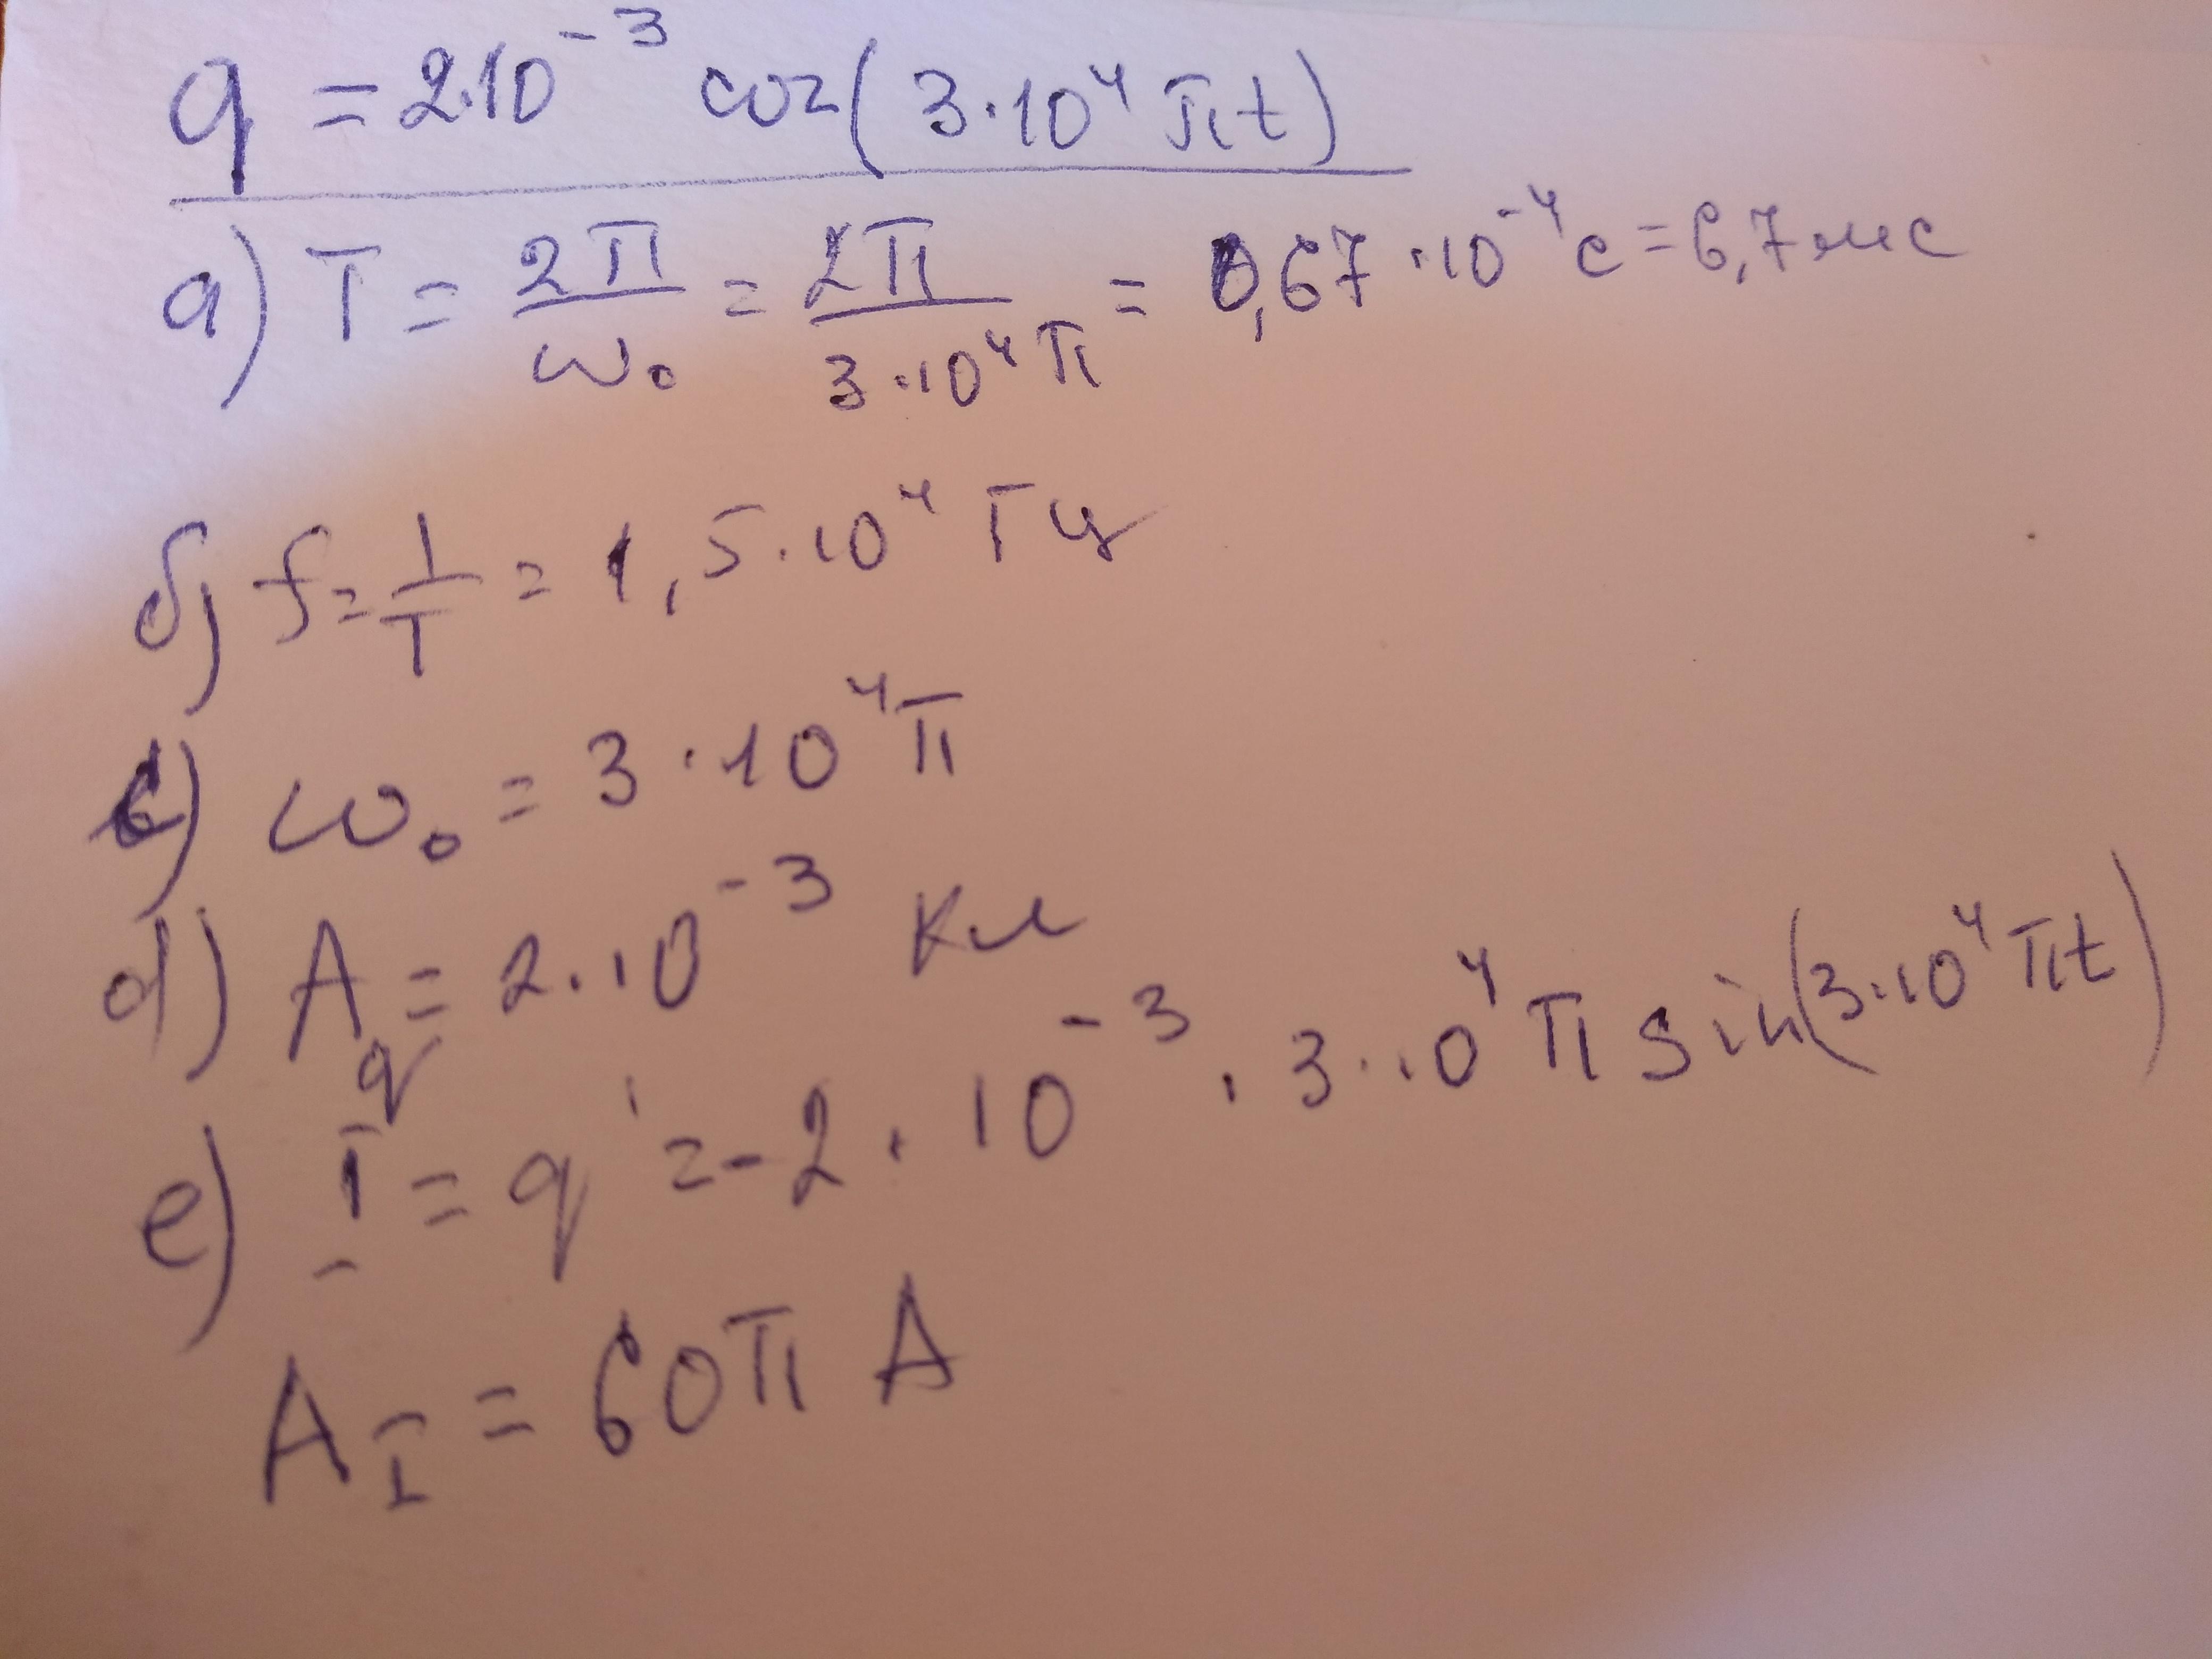 q = 2·10⁻³ cos(3·10⁴ πt)
a) T = 2π/ω₀ = 2π/(3·10⁴π) = 0,67·10⁻⁴ с = 6,7 мс
б) f = 1/T = 1,5·10⁴ Гц
c) ω₀ = 3·10⁴π
d) A_q = 2·10⁻³ Кл
e) I = q' = -2·10⁻³·3·10⁴π sin(3·10⁴πt)
A_I = 60π A